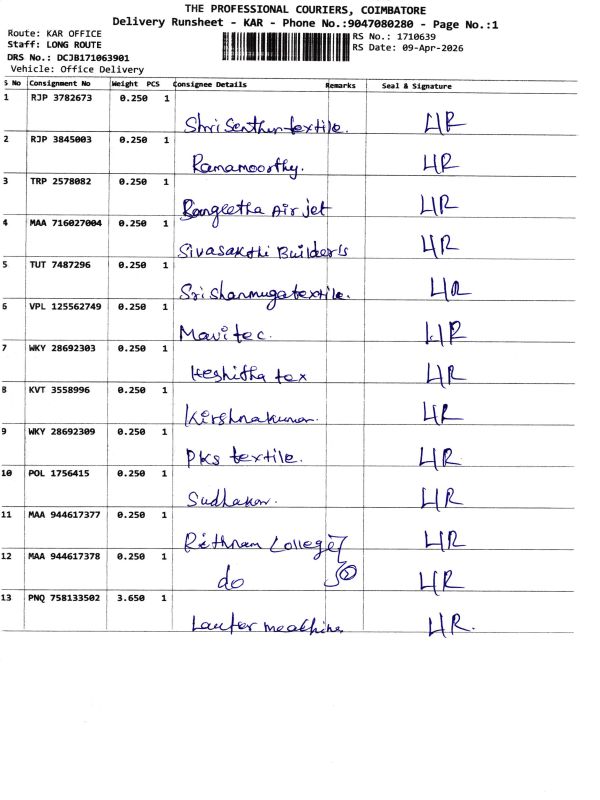 THE PROFESSIONAL COURIERS, COIMBATORE
Delivery Runsheet - KAR - Phone No.:9047080280 - Page No.:1
Route: KAR OFFICE
Staff: LONG ROUTE
DRS No.: DCJB171063901
Vehicle: Office Delivery
RS No.: 1710639
RS Date: 09-Apr-2026
S No Consignment No Weight PCS Consignee Details Remarks Seal & Signature
1 RJP 3782673 0.250 1
Shri Senthur textile. HR
2 RJP 3845003 0.250 1
Ramamoorthy. HR
3 TRP 2578082 0.250 1
Air jet HR
4 MAA 716027004 0.250 1
Sivasakthi Builder's HR
5 TUT 7487296 0.250 1
Sri Shanmuga textile. HR
6 VPL 125562749 0.250 1
Mavitec. HR
7 WKY 28692303 0.250 1
Keshitha tex HR
8 KVT 3558996 0.250 1
Kirshnakumar. HR
9 WKY 28692309 0.250 1
PKS textile. HR
10 POL 1756415 0.250 1
Sudhakar. HR
11 MAA 944617377 0.250 1
College HR
12 MAA 944617378 0.250 1
do HR
13 PNQ 758133502 3.650 1
HR.